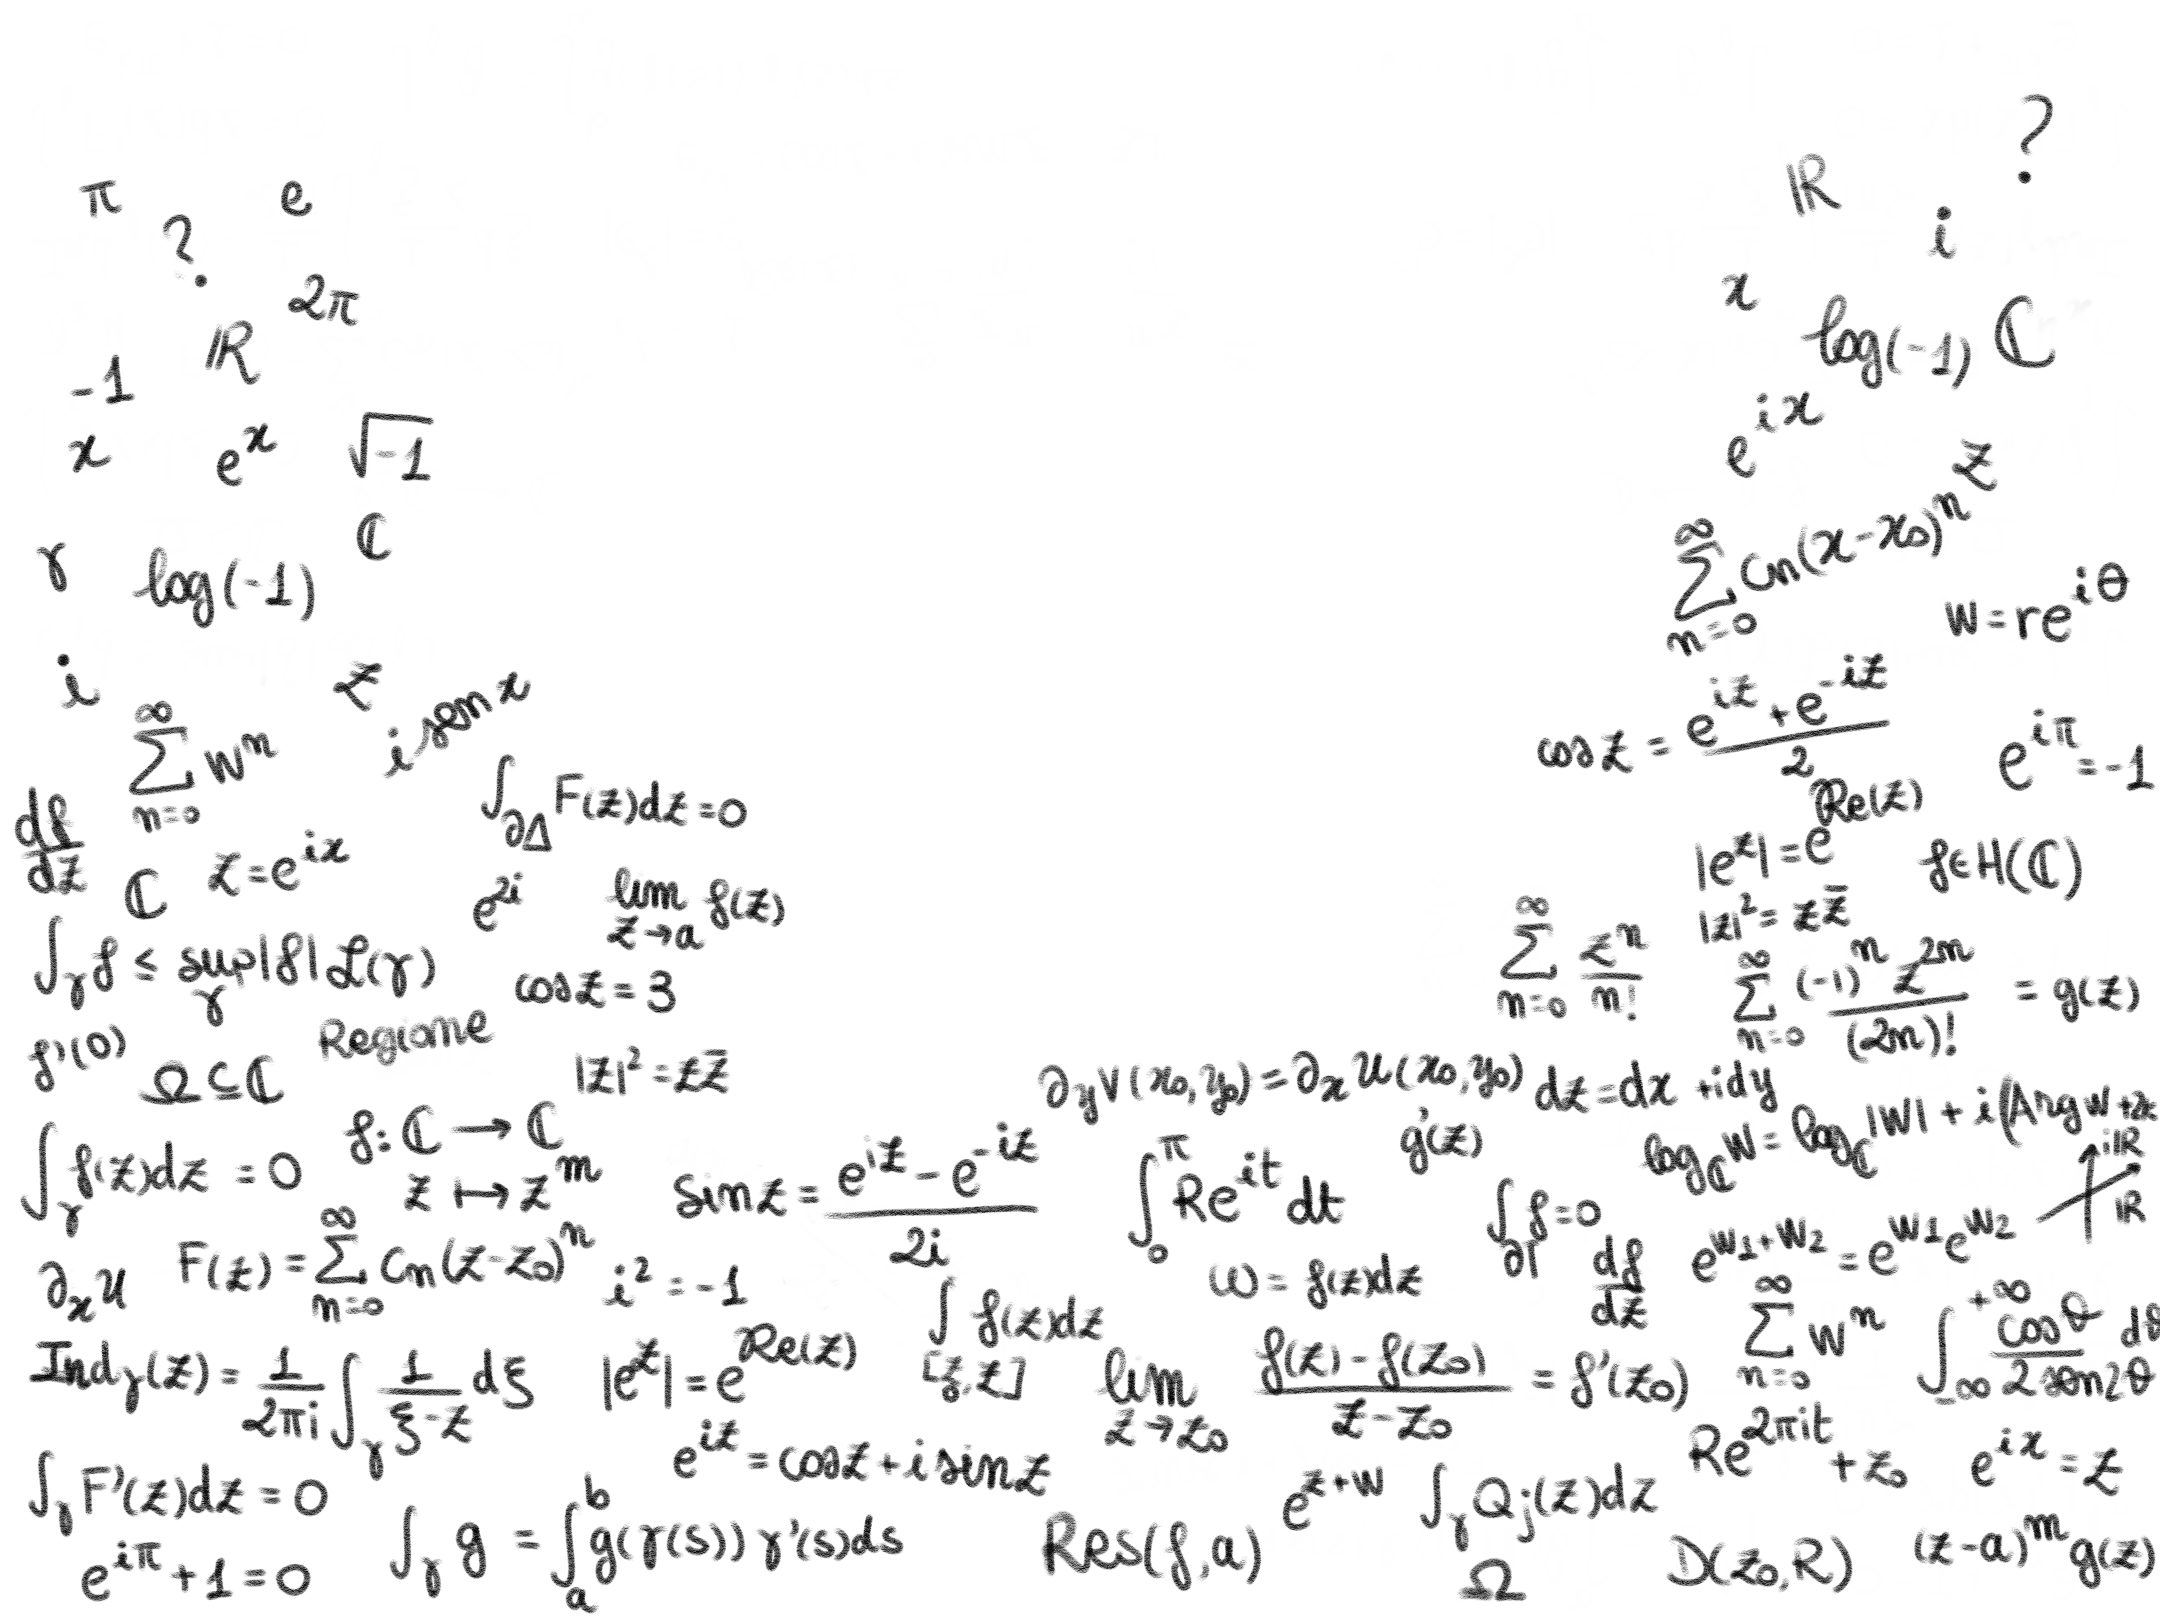 π e
?
2π
ℝ
-1
x e^x √-1
γ log(-1) ℂ
i z
i sen x
∑_{n=0}^{∞} w^n
∫_{∂Δ} F(z)dz=0
df/dz ℂ z=e^{ix}
e^{2i} lim_{z→a} f(z)
∫_γ f ≤ sup_γ |f| ℒ(γ)
cos z = 3
f'(0) Ω⊆ℂ Regione
|z|²=z z̄
∫_γ f(z)dz = 0
f: ℂ → ℂ
z ↦ z^m
∂_x u F(z)=∑_{n=0}^{∞} c_n(z-z_0)^n i²=-1
Ind_γ(z)= 1/(2πi) ∫_γ 1/(ξ-z) dξ
|e^z|=e^{Re(z)}
∫_γ F'(z)dz=0
e^{iz}=cos z+i sin z
e^{iπ}+1=0
∫_γ g = ∫_a^b g(γ(s)) γ'(s)ds
?
ℝ
i
x log(-1) ℂ
e^{ix}
z
∑_{n=0}^{∞} c_n(x-x_0)^n
w=re^{iθ}
cos z = (e^{iz}+e^{-iz})/2
e^{iπ}=-1
|e^z|=e^{Re(z)} f∈H(ℂ)
|z|²=z z̄
∑_{n=0}^{∞} z^n/n! ∑_{n=0}^{∞} (-1)^n z^{2n}/(2n)! = g(z)
∂_y v(x_0,y_0)=∂_x u(x_0,y_0) dz=dx+idy
g'(z) log_ℂ w=log_ℂ|w|+i(Arg w+2
sin z = (e^{iz}-e^{-iz})/2i
∫_0^π Re^{it}dt
iℝ
ℝ
∫_{∂Γ} f=0
ω=f(z)dz df/dz e^{w_1+w_2}=e^{w_1}e^{w_2}
∫_{[ξ,z]} f(z)dz
∑_{n=0}^{∞} w^n ∫_{-∞}^{+∞} cosθ/(2sen2θ) dθ
lim_{z→z_0} (f(z)-f(z_0))/(z-z_0) = f'(z_0)
Re^{2πit}+z_0 e^{ix}=z
e^{z+w} ∫_γ Q_j(z)dz
Res(f,a) Ω D(z_0,R) (z-a)^m g(z)